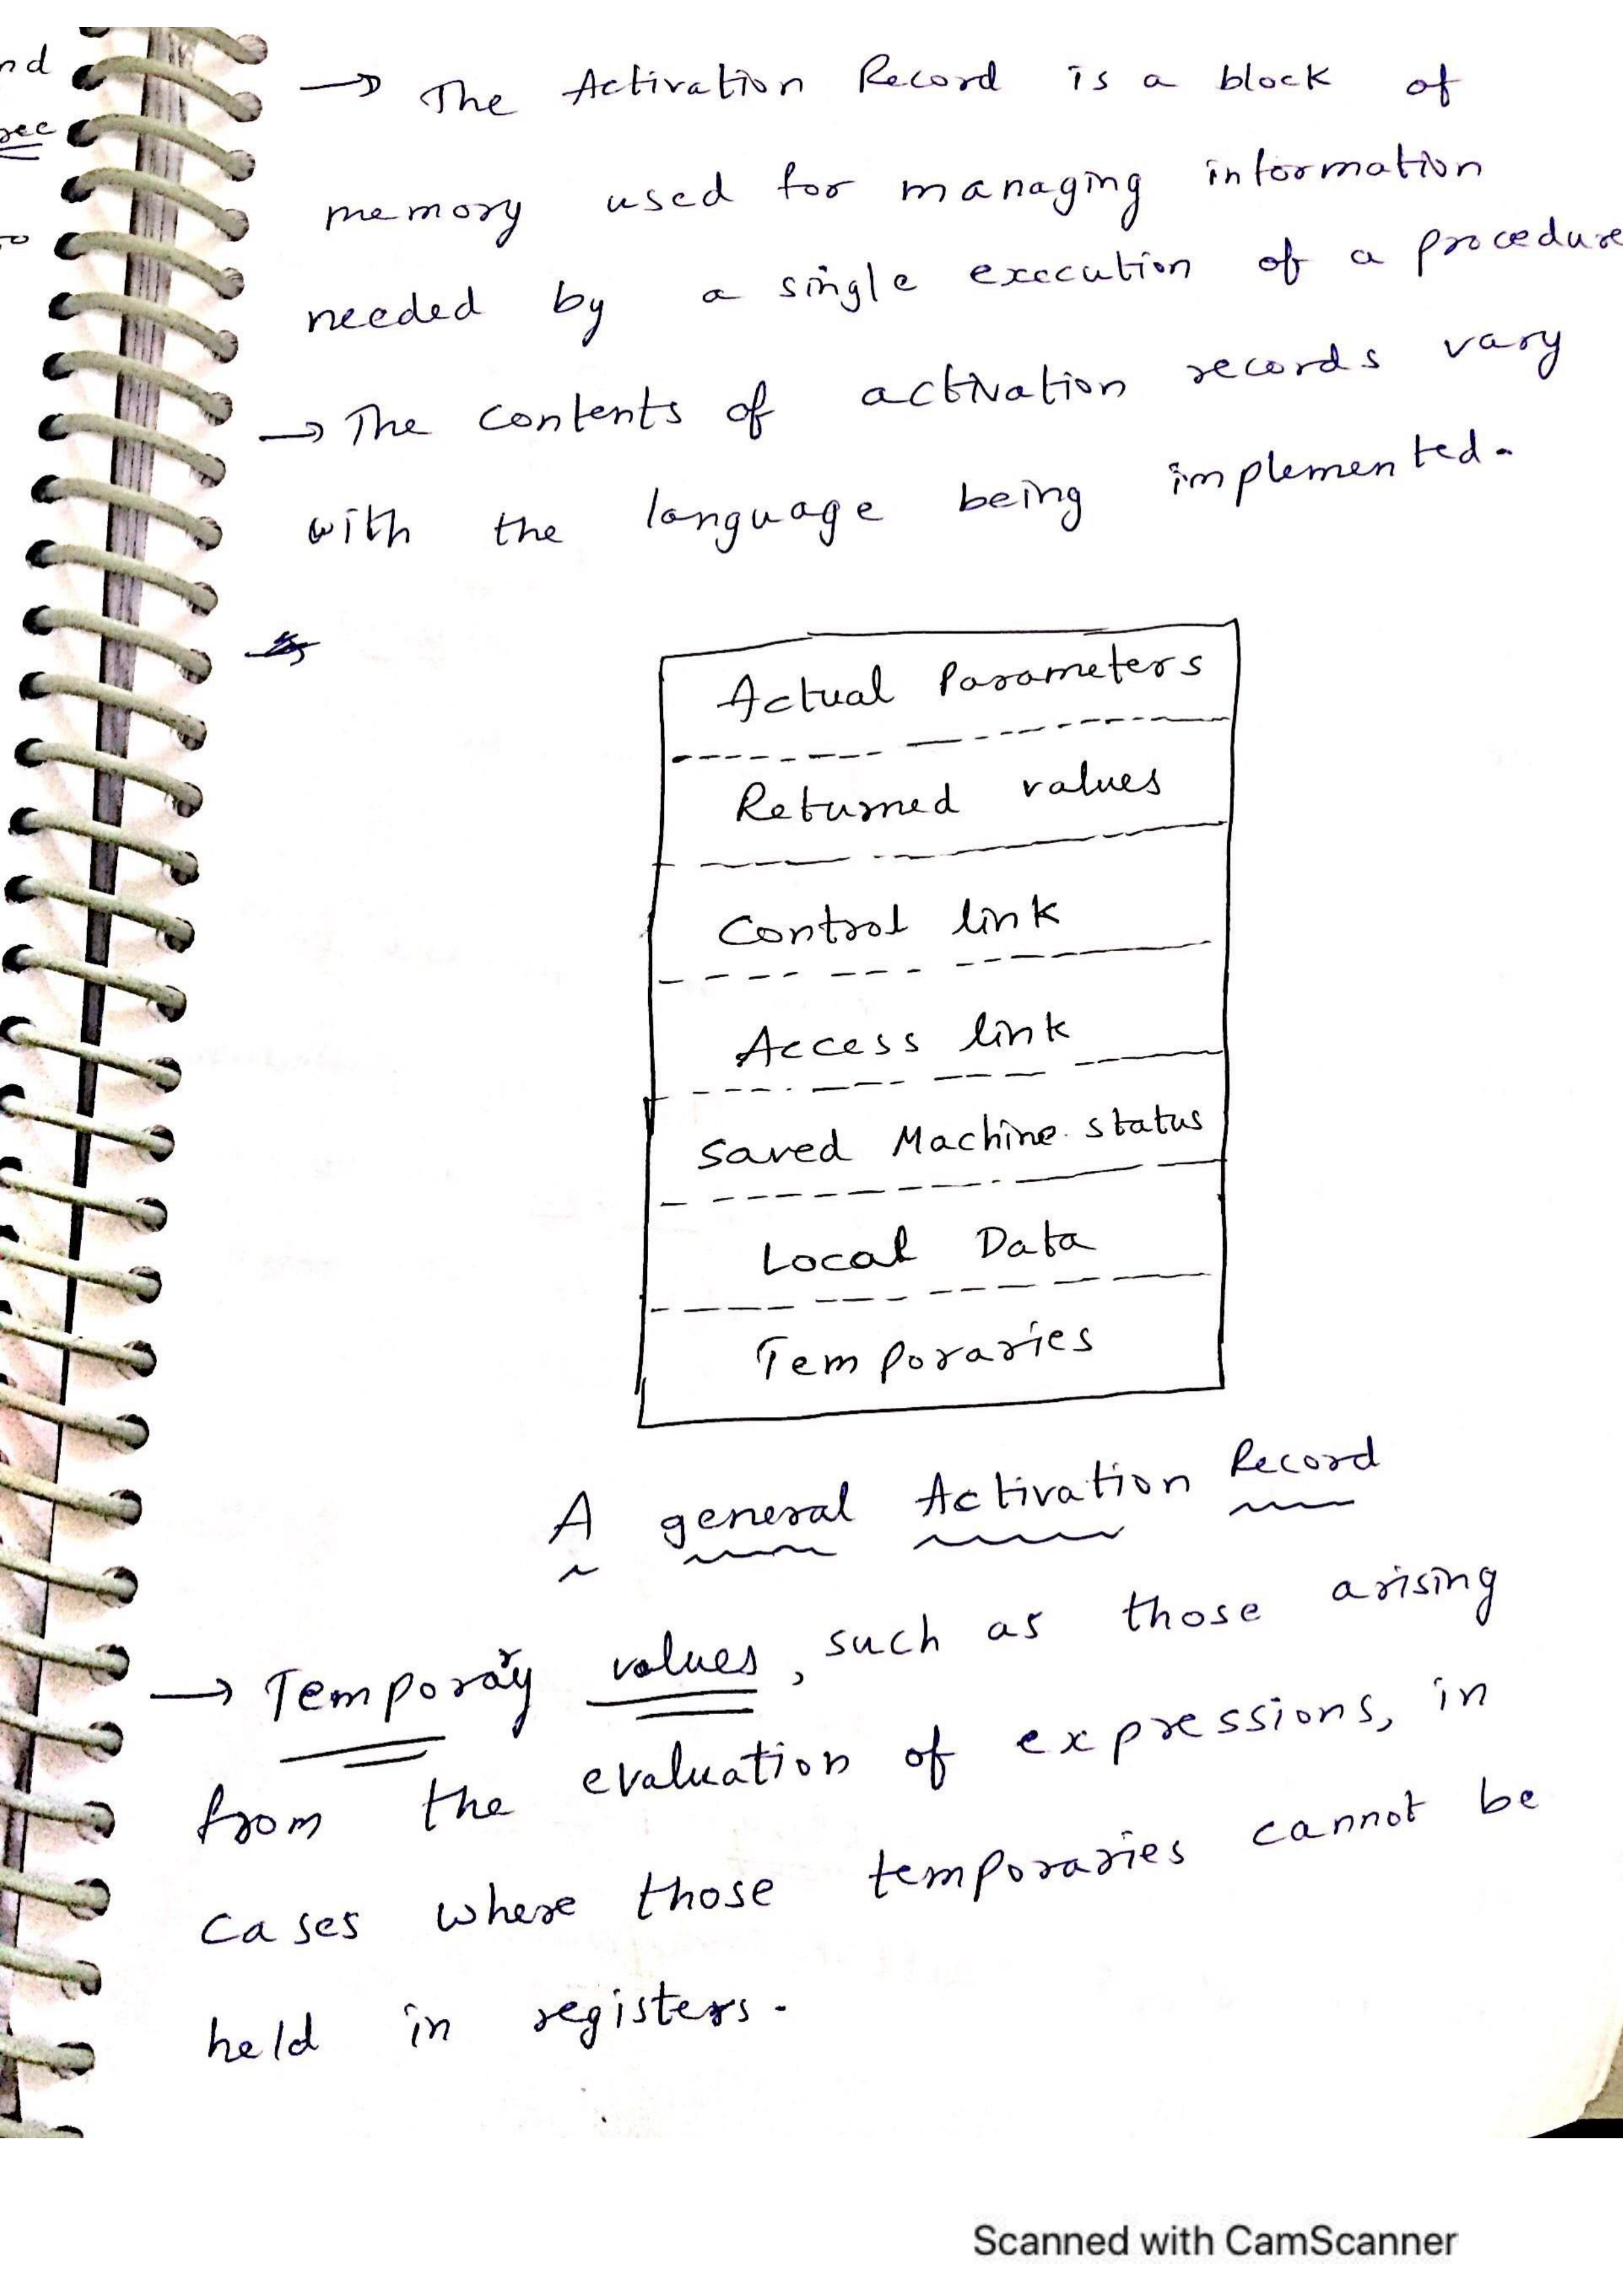 nd
→ The Activation Record is a block of
memory used for managing information
needed by a single execution of a procedure
→ The contents of activation records vary
with the language being implemented.
Actual Parameters
Returned values
Control link
Access link
Saved Machine status
Local Data
Temporaries
A general Activation Record
→ Temporary values, such as those arising
from the evaluation of expressions, in
cases where those temporaries cannot be
held in registers.
Scanned with CamScanner